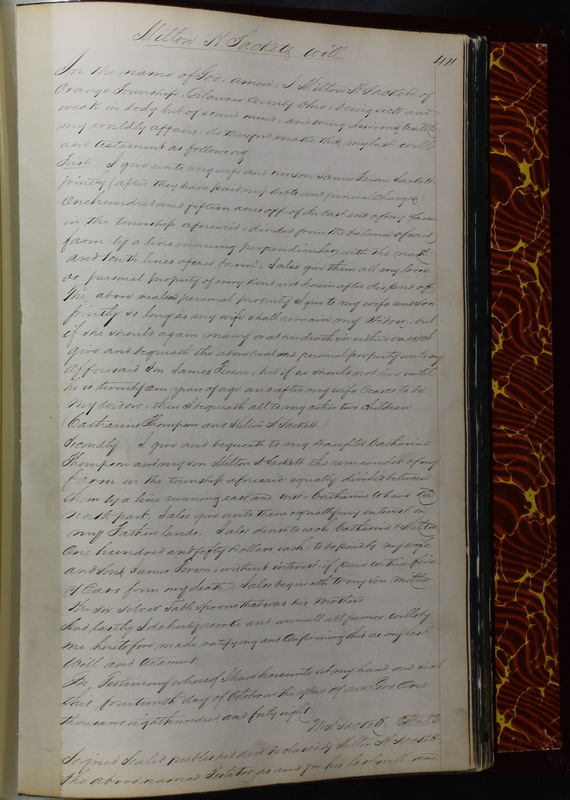 Milton K Sacketts Will
411
In the name of God, amen, I Milton K Sackett of
Orange Township, Delaware County Ohio, being sick and
weak in body but of sound mind, and being desirous to settle
my worldly affairs, do therefore make this my last will
and testament as follows
First I give unto my wife and our son James Ferson Sackett
jointly (after they have paid my debts and funeral charges)
One hundred and fifteen acres off of the east end of my farm
in the township aforesaid, divided from the balance of said
farm by a line running perpendicular with the north
and South lines of said farm, I also give them all my
personal property of every kind not herein after disposed of
The above real and personal property I give to my wife and son
jointly so long as my wife shall remain my Widow, but
if she should again marry or at her death in either case I
give and bequeath the above real and personal property unto my
afforesaid Son James Ferson, but if he should not live until
he is twenty one years of age and after my wife ceases to be
my widow, then I bequeath all to my other two children
(Catharine Thompson and Milton Sackett)
Secondly I give and bequeath to my daughter Catharine
Thompson and my son Milton Sackett the remainder of my
farm in the township aforesaid equally divided between
them by a line running east and west, Catharine to have the
north part, I also give unto them equally my interest in
my Fathers lands. I also devise to each Catharine & Milton
One hundred and fifty dollars each to be paid by my wife
and Son James Ferson, without interest if paid within five
Years from my death, I also bequeath to my Son Milton
six silver Table Spoons that was his Mothers
And lastly I do hereby revoke and annull all former wills by
me heretofore made ratifying and Confirming this as my last
Will and testament
In Testimony whereof I have hereunto set my hand and seal
this fourteenth day of October in the year of our Lord One
thousand eight hundred and forty eight
M K Sackett Seal
Signed Sealed published and declared by Milton K Sackett
the above named Testator as and for his last will and